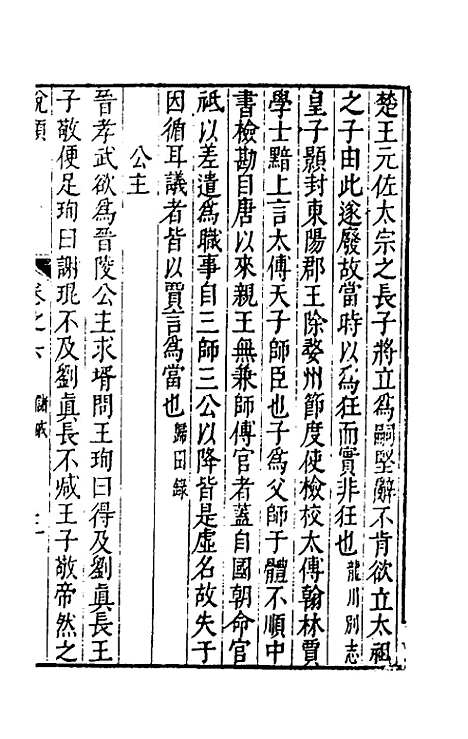 楚王元佐太宗之長子將立爲嗣堅辭不肯欲立太祖
之子由此遂廢故當時以爲狂而實非狂也龍川別志
皇子顥封東陽郡王除婺州節度使檢校太傅翰林賈
學士黯上言太傅天子師臣也子爲父師于體不順中
書檢勘自唐以來親王無兼師傅官者蓋自國朝命官
祗以差遣爲職事自三師三公以降皆是虛名故失于
因循耳議者皆以賈言爲當也歸田錄
公主
晉孝武欲爲晉陵公主求壻問王珣曰得及劉眞長王
子敬便足珣曰謝琨不及劉眞長不减王子敬帝然之
說頤
卷之六
儲戚